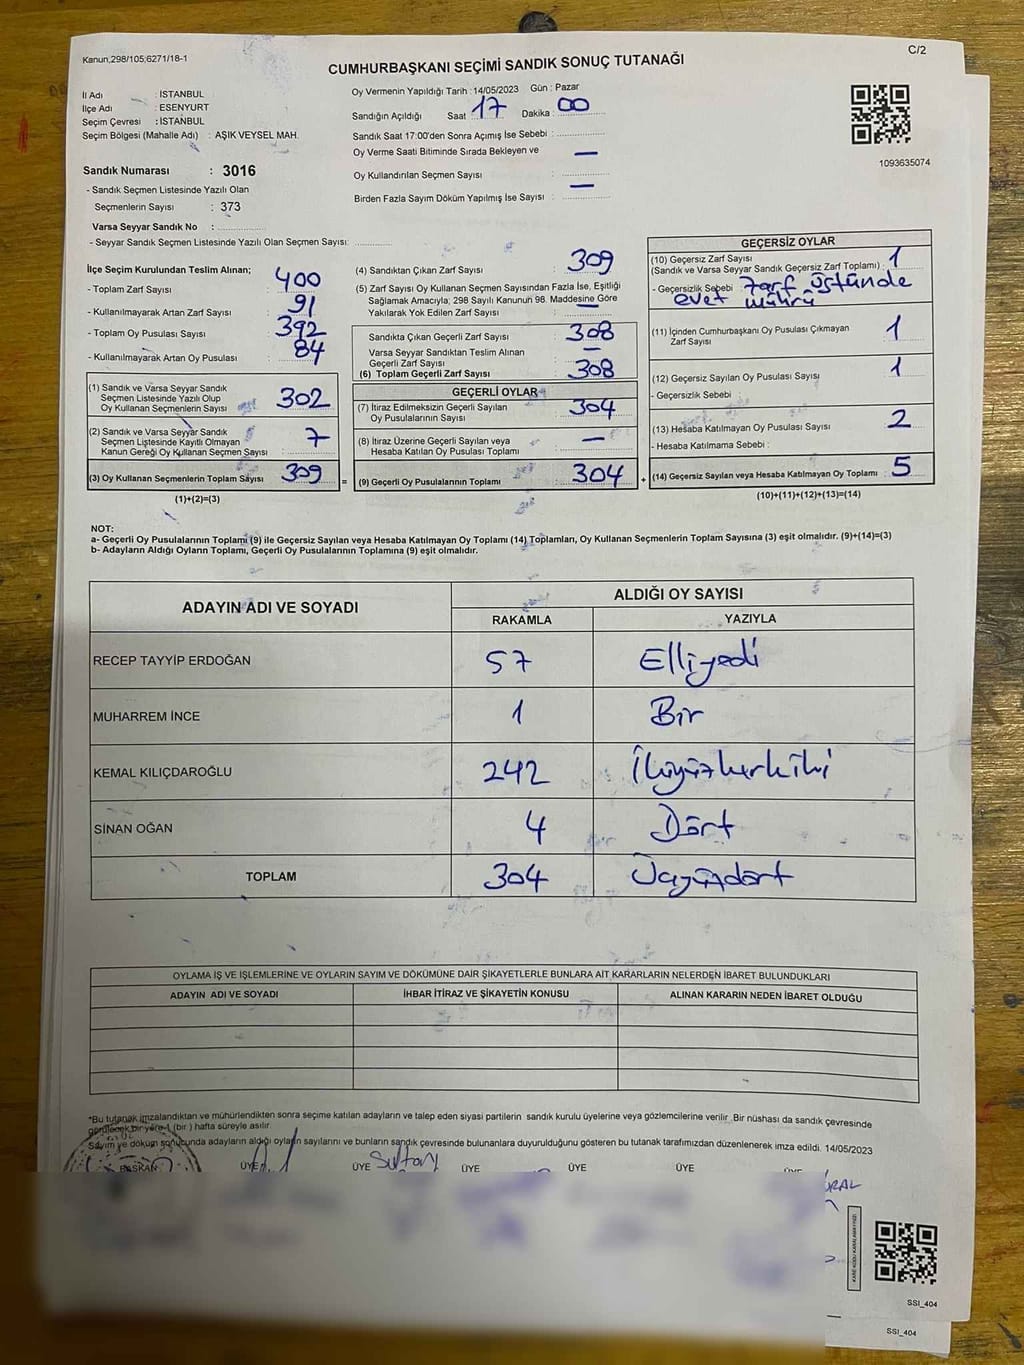 Kanun,298/105;6271/18-1
C/2
CUMHURBAŞKANI SEÇİMİ SANDIK SONUÇ TUTANAĞI
İl Adı : İSTANBUL
İlçe Adı : ESENYURT
Seçim Çevresi : İSTANBUL
Seçim Bölgesi (Mahalle Adı) : AŞIK VEYSEL MAH.
Oy Vermenin Yapıldığı Tarih : 14/05/2023 Gün : Pazar
Sandığın Açıldığı Saat : 17 Dakika : 00
Sandık Saat 17:00'den Sonra Açımış İse Sebebi :
Oy Verme Saati Bitiminde Sırada Bekleyen ve
Oy Kullandırılan Seçmen Sayısı : —
Birden Fazla Sayım Döküm Yapılmış İse Sayısı : —
1093635074
Sandık Numarası : 3016
- Sandık Seçmen Listesinde Yazılı Olan
Seçmenlerin Sayısı : 373
Varsa Seyyar Sandık No :
- Seyyar Sandık Seçmen Listesinde Yazılı Olan Seçmen Sayısı:
İlçe Seçim Kurulundan Teslim Alınan;
- Toplam Zarf Sayısı : 400
- Kullanılmayarak Artan Zarf Sayısı : 91
- Toplam Oy Pusulası Sayısı : 392
- Kullanılmayarak Artan Oy Pusulası : 84
(1) Sandık ve Varsa Seyyar Sandık
Seçmen Listesinde Yazılı Olup
Oy Kullanan Seçmenlerin Sayısı : 302
(2) Sandık ve Varsa Seyyar Sandık
Seçmen Listesinde Kayıtlı Olmayan
Kanun Gereği Oy Kullanan Seçmen Sayısı : 7
(3) Oy Kullanan Seçmenlerin Toplam Sayısı : 309 =
(1)+(2)=(3)
(4) Sandıktan Çıkan Zarf Sayısı : 309
(5) Zarf Sayısı Oy Kullanan Seçmen Sayısından Fazla İse, Eşitliği
Sağlamak Amacıyla; 298 Sayılı Kanunun 98. Maddesine Göre
Yakılarak Yok Edilen Zarf Sayısı : —
Sandıkta Çıkan Geçerli Zarf Sayısı : 308
Varsa Seyyar Sandıktan Teslim Alınan
Geçerli Zarf Sayısı : —
(6) Toplam Geçerli Zarf Sayısı : 308
GEÇERLİ OYLAR
(7) İtiraz Edilmeksizin Geçerli Sayılan
Oy Pusulalarının Sayısı : 304
(8) İtiraz Üzerine Geçerli Sayılan veya
Hesaba Katılan Oy Pusulası Toplamı : —
(9) Geçerli Oy Pusulalarının Toplamı : 304 +
GEÇERSİZ OYLAR
(10) Geçersiz Zarf Sayısı
(Sandık ve Varsa Seyyar Sandık Geçersiz Zarf Toplamı) : 1
- Geçersizlik Sebebi : zarf üstünde
evet mührü
(11) İçinden Cumhurbaşkanı Oy Pusulası Çıkmayan
Zarf Sayısı : 1
(12) Geçersiz Sayılan Oy Pusulası Sayısı : 1
- Geçersizlik Sebebi :
(13) Hesaba Katılmayan Oy Pusulası Sayısı : 2
- Hesaba Katılmama Sebebi :
(14) Geçersiz Sayılan veya Hesaba Katılmayan Oy Toplamı : 5
(10)+(11)+(12)+(13)=(14)
NOT:
a- Geçerli Oy Pusulalarının Toplamı (9) ile Geçersiz Sayılan veya Hesaba Katılmayan Oy Toplamı (14) Toplamları, Oy Kullanan Seçmenlerin Toplam Sayısına (3) eşit olmalıdır. (9)+(14)=(3)
b- Adayların Aldığı Oyların Toplamı, Geçerli Oy Pusulalarının Toplamına (9) eşit olmalıdır.
ADAYIN ADI VE SOYADI
ALDIĞI OY SAYISI
RAKAMLA YAZIYLA
RECEP TAYYİP ERDOĞAN 57 Elliyedi
MUHARREM İNCE 1 Bir
KEMAL KILIÇDAROĞLU 242 İkiyüzkırkiki
SİNAN OĞAN 4 Dört
TOPLAM 304 Üçyüzdört
OYLAMA İŞ VE İŞLEMLERİNE VE OYLARIN SAYIM VE DÖKÜMÜNE DAİR ŞİKAYETLERLE BUNLARA AİT KARARLARIN NELERDEN İBARET BULUNDUKLARI
ADAYIN ADI VE SOYADI İHBAR İTİRAZ VE ŞİKAYETİN KONUSU ALINAN KARARIN NEDEN İBARET OLDUĞU
*Bu tutanak imzalandıktan ve mühürlendikten sonra seçime katılan adayların ve talep eden siyasi partilerin sandık kurulu üyelerine veya gözlemcilerine verilir .Bir nüshası da sandık çevresinde
görülecek bir yere 1 (bir ) hafta süreyle asılır.
Sayım ve döküm sonucunda adayların aldığı oyların sayılarını ve bunların sandık çevresinde bulunanlara duyurulduğunu gösteren bu tutanak tarafımızdan düzenlenerek imza edildi. 14/05/2023
BAŞKAN ÜYE ÜYE Sultan ÜYE ÜYE ÜYE ÜYE
SSI_404
SSI_404